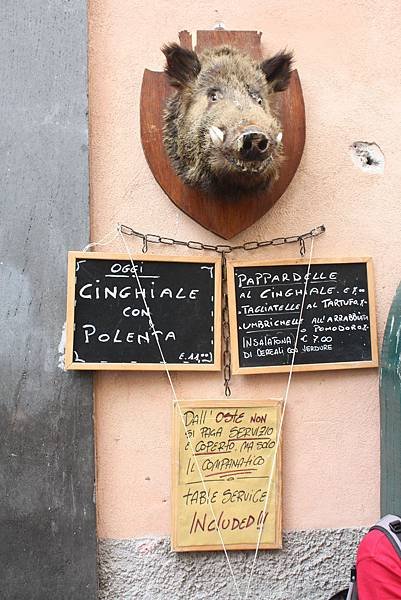 OGGI
CINGHIALE
CON
POLENTA
€. 11,00
PAPPARDELLE
AL CINGHIALE. €
TAGLIATELLE AL TARTUFO
UMBRICHELLE ALL'ARRABBIATA
O POMODORO
INSALATONA € 7.00
DI CEREALI CON VERDURE
DALL'OSTE NON
SI PAGA SERVIZIO
E COPERTO. MA SOLO
IL COMPANATICO
O
TABLE SERVICE
INCLUDED!!!